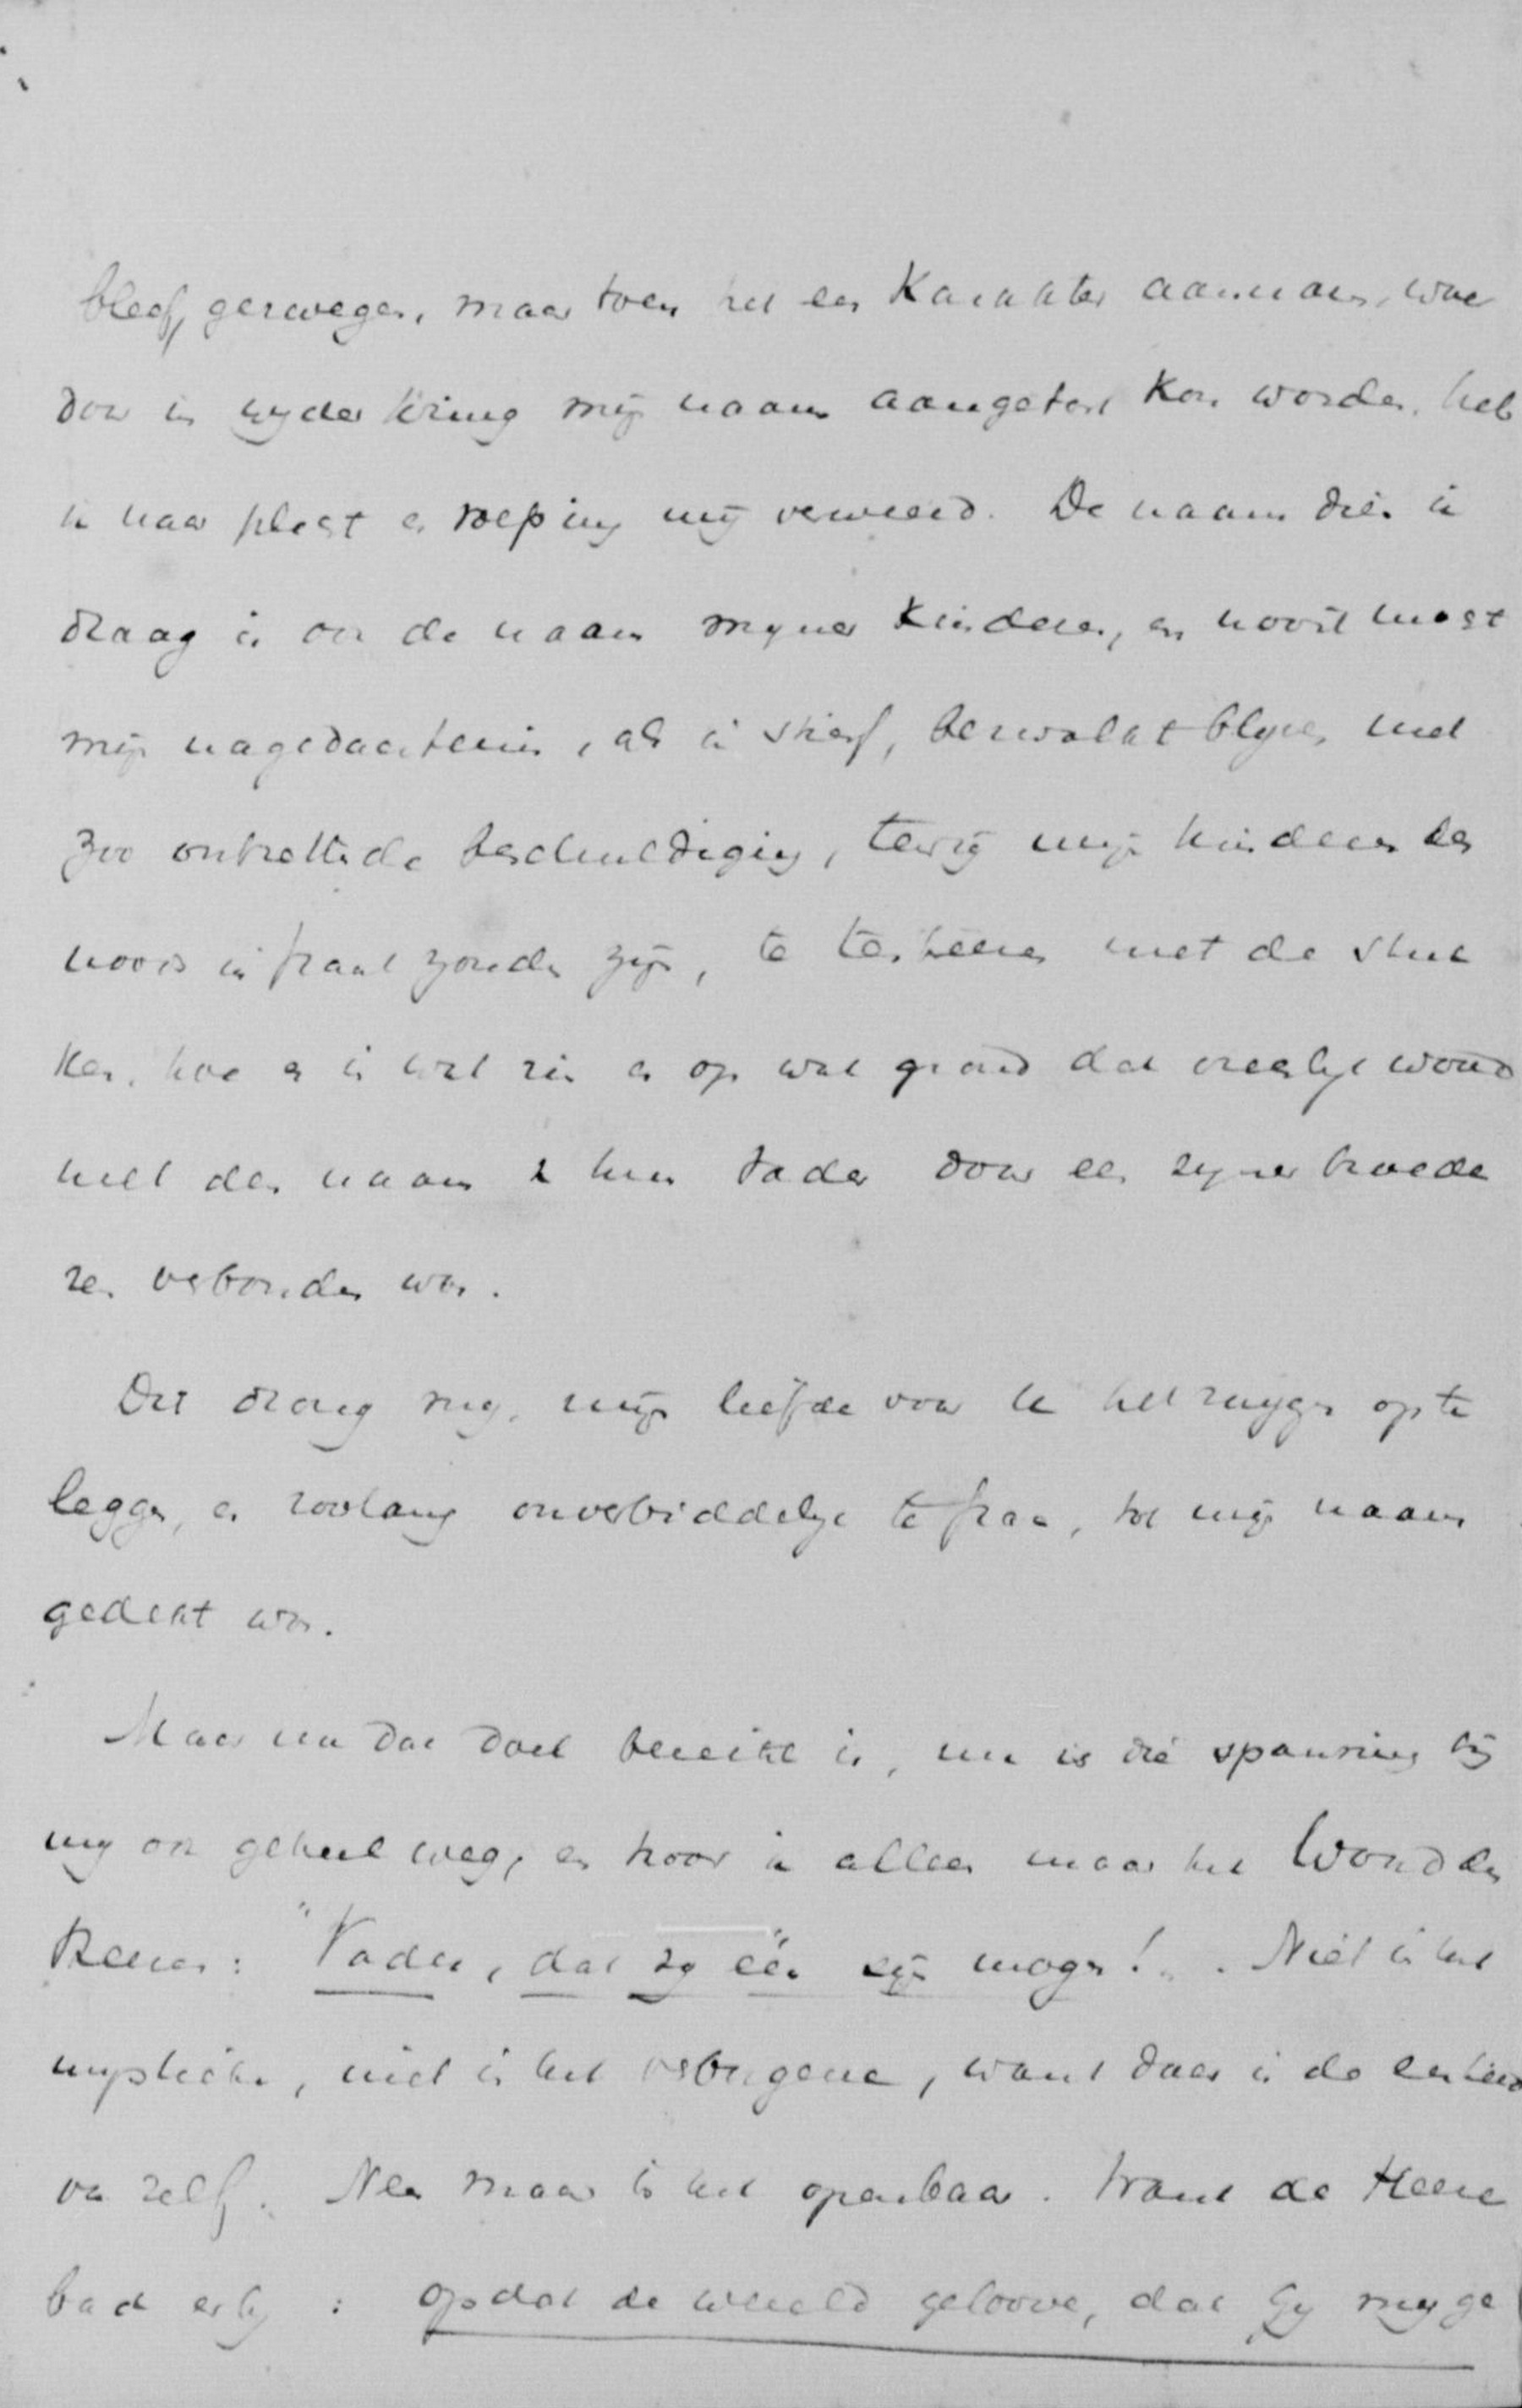 bleef, gezwegen, maar toen het een Karakter aannam, waar
door in wyder kring mijn naam aangetast kon worden, heb
ik naar plicht en roeping mij verweerd. De naam dien ik
draag is ook de naam myner Kinderen, en nooit mocht
mijn nagedachtenis, als ik stierf, bezwalkt blyven met
zoo ontzettende beschuldiging, terwijl mijn kinderen dan
nooit in staat zouden zijn, te met de stuk
ken, hoe en in wat zin en op wat grond dat vreeslyk woord
met den naam v hun Vader door een zyner broede
ren verbonden was.
Dit drong my, mijn liefde voor U het zwygen op te
leggen, en zoolang onverbiddelyk te staan, tot mijn naam
gedekt was.
Maar nu dat doel bereikt is, nu is die spanning bij
my ook geheel weg, en hoor ik alleen maar het Woord des
Heeren: "Vader, dat zy één zijn mogen!". Niet in het
mystieke, niet in het verborgene, want daar is de eenheid
van zelf. Neen maar in het openbaar. Want de Heere
bad erby: opdat de wereld geloove, dat Gy my ge